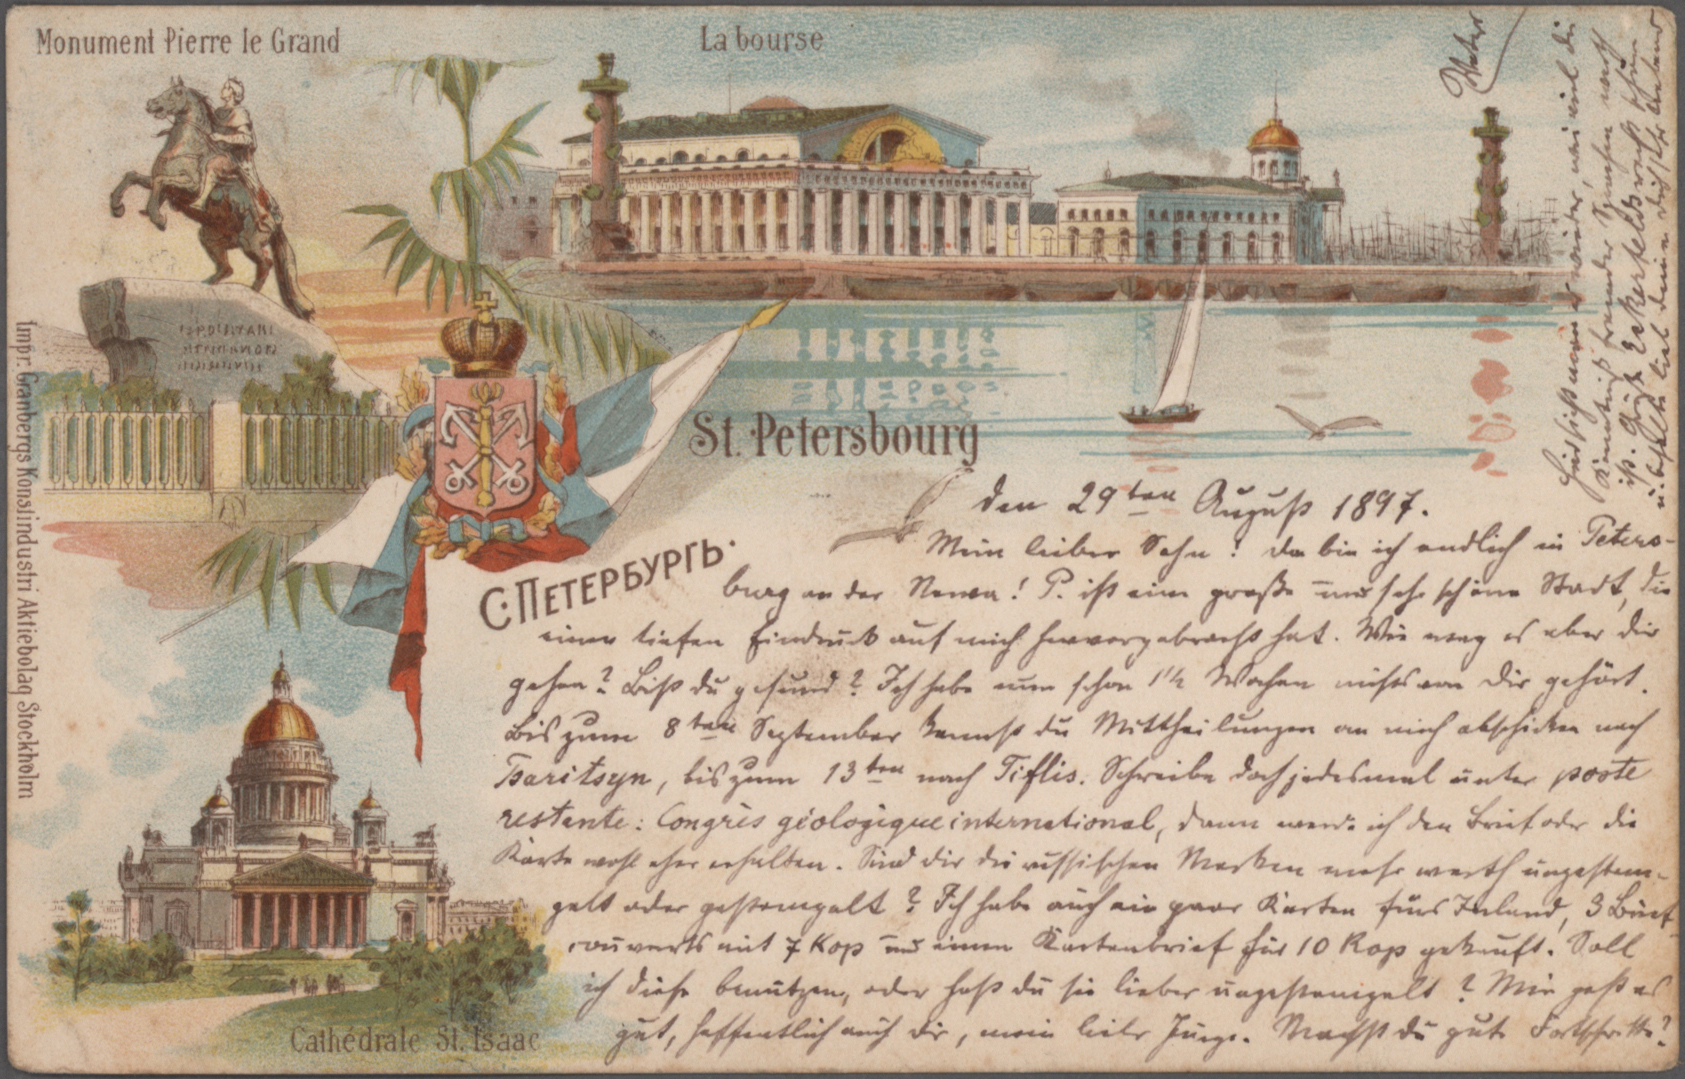 Monument Pierre le Grand
La bourse
Impr. Granbergs Konstindustri Aktiebolag Stockholm
St. Petersbourg
С. ПЕТЕРБУРГЪ.
Cathédrale St. Isaac
den 29ten August 1897.
Mein lieber Sohn! Da bin ich endlich in Peters-
burg an der Newa! P. ist eine große und sehr schöne Stadt, die
einen tiefen Eindruck auf mich hervorgebracht hat. Wie mag es aber dir
gehen? Bist du gesund? Ich habe nun schon 1 1/2 Wochen nichts von dir gehört.
Bis zum 8ten September kannst du Mittheilungen an mich abschicken nach
Tsaritsyn, bis zum 13ten nach Tiflis. Schreibe doch jedesmal unter poste
restante: Congrès géologique international, dann werde ich den Brief oder die
Karte wohl eher erhalten. Sind dir die russischen Marken mehr werth ungestem-
pelt oder gestempelt? Ich habe auch ein paar Karten fürs Inland, 3 Brief-
couverts mit 7 Kop und einen Kartenbrief für 10 Kop gekauft. Soll
ich diese benützen, oder hast du sie lieber ungestempelt? Mir geht es
gut, hoffentlich auch dir, mein lieber Junge. Machst du gute Fortschritte?
die
Kenntniß fremder Sprachen werth
ist.
Vater